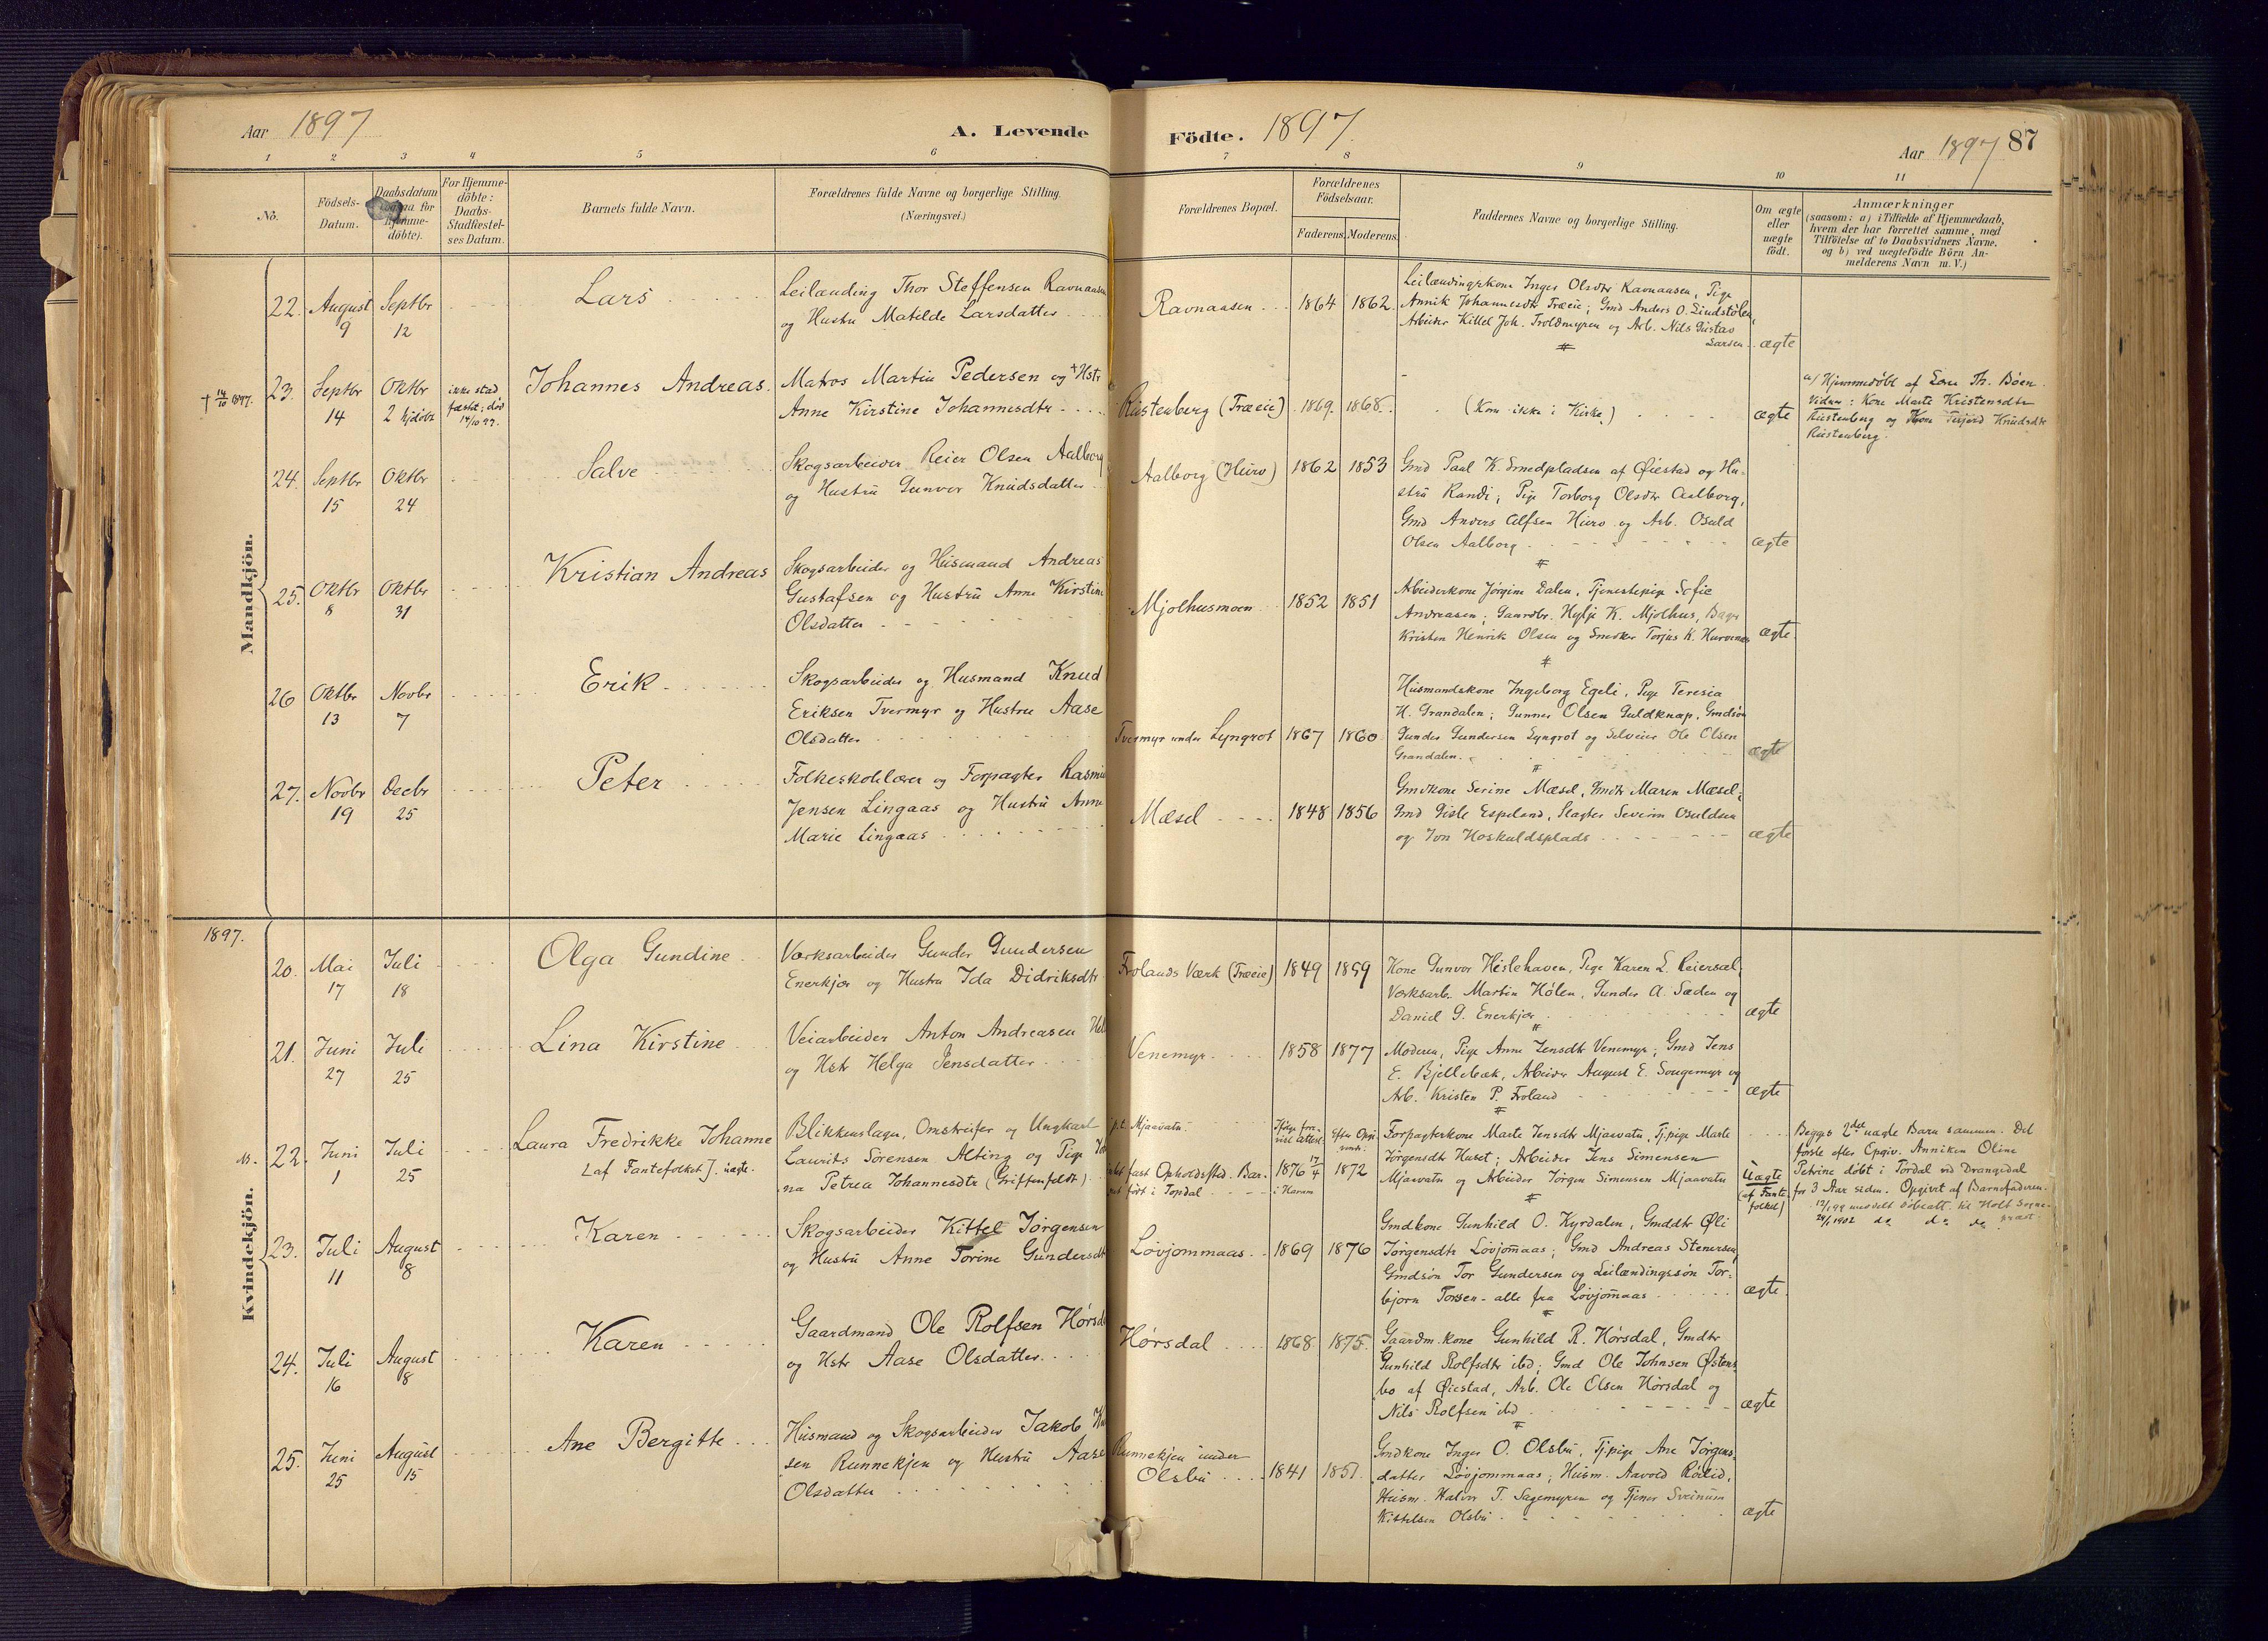 Aar 1897
A. Levende
Födte. 1897.
Aar 1897
87
1 2 3 4 5 6 7 8 9 10 11
No.
Födsels-
Datum.
Daabsdatum
for
Hjemme-
döbte).
For Hjemme-
döbte:
Daabs-
Stadfæstel-
ses Datum.
Barnets fulde Navn.
Forældrenes fulde Navne og borgerlige Stilling.
(Næringsvei.)
Forældrenes Bopæl.
Forældrenes
Födselsaar.
Faderens. Moderens.
Faddernes Navne og borgerlige Stilling.
Om ægte
eller
uægte
födt.
Anmærkninger
(saasom: a) i Tilfælde af Hjemmedaab,
hvem der har forrettet samme, med
Tilföielse af to Daabsvidners Navne.
og b) ved uægtefödte Börn An-
melderens Navn m. V.)
Mandkjön.
22. August 9
Septbr 12
Lars
Leilænding Thor Steffensen Ravnaasen
og Hustru Matilde Larsdatter
Ravnaasen
1864 1862.
Leilændingskone Inger Olsdtr Ravnaasen, Pige
Annik Johannesdtr Træeie; Gmd Anders O. Lindstølen,
Arbeider Kittel Joh. Troldmyren og Arb. Nils Gustav
Larsen
ægte
† 14/10 1897.
23. Septbr 14
Oktbr 2 hjdøbt
ikke stad
fæstet; død
14/10 97.
Johannes Andreas.
Matros Martin Pedersen og Hstr
Anne Kirstine Johannesdtr
Rustenberg (Træeie)
1869. 1868.
(Kom ikke i Kirke)
ægte
a/ Hjemmedøbt af Th. Bøen.
Vidner: Kone Marte Kristensdtr
Rustenberg og Kone Terjerd Knudsdtr
Rustenberg.
24. Septbr 15
Oktbr 24
Salve
Skogsarbeider Reier Olsen Aalborg
og Hustru Gunvor Knudsdatter
Aalborg (Hurv)
1862 1853
Gmd Paul K. Smedpladsen af Øiestad og Hu-
stru Randi; Pige Torborg Olsdtr Aalborg,
Gmd Anders Alfsen Hurv og Arb. Osuld
Olsen Aalborg
ægte
25. Oktbr 8
Oktbr 31
Kristian Andreas
Skogsarbeider og Husmand Andreas
Gustafsen og Hustru Anne Kirstine
Olsdatter
Mjolhusmoen
1852 1851
Arbeiderkone Jørgine Dalen, Tjenestepige Sofie
Andreasen; Gaardbr. Hylje K. Mjolhus, Bager
Kristen Henrik Olsen og Snedker Torjus K. Hurvenæs
ægte
26 Oktbr 13
Novbr 7
Erik
Skogsarbeider og Husmand Knud
Eriksen Tvermyr og Hustru Aase
Olsdatter
Tvermyr under Lyngrot
1867 1860
Husmandskone Ingeborg Egeli, Pige Teresia
H. Grandalen; Gunner Olsen Guldknap, Gmdsøn
Gunder Gundersen Lyngrot og Selveier Ole Olsen
Grandalen.
ægte
27. Novbr 19
Decbr 25
Peter
Folkeskolelærer og Forpagter Rasmus
Jensen Lingaas og Hustru Anne
Marie Lingaas
Mæsel
1848 1856
Gmdkone Serine Mæsel, Gmdtr Maren Mæsel;
Gmd Gisle Espeland, Slagter Severin Osuldsen
og Jon Hoskuldsplads
ægte
1897.
Kvindekjön.
20. Mai 17
Juli 18
Olga Gundine
Værksarbeider Gunder Gundersen
Enerkjær og Hustru Ida Didriksdtr
Frolands Værk (Træeie)
1849 1859
Kone Gunvor Heslehaven, Pige Karen L. Reiersøl,
Værksarb. Martin Hólen, Gunder A. Sæden og
Daniel G. Enerkjær
ægte
21. Juni 27
Juli 25
Lina Kirstine
Veiarbeider Anton Andreasen
og Hstr Helga Jensdatter
Venemyr
1858 1877
Moderen, Pige Anne Jensdtr Venemyr; Gmd Jens
E. Bjellebæk, Arbeider August E. Sougemyr og
Arb. Kristen P. Froland
ægte
22. Juni 1
Juli 25
Laura Fredrikke Johanne
[af Fantefolket]. uægte.
Blikkenslager, Omstreifer og Ungkarl
Laurits Sørensen Alting og Pige
na Petrea Johannesdtr (Griffenfeldt)
p.t. Mjaavatn.
fast Opholdssted. Bar-
net født i Topdal
1876 17/4
i Haram
1872
Forpagterkone Marte Jensdtr Mjaavatn, Tj.pige Marte
Jørgensdt Huset; Arbeider Jens Simensen
Mjaavatn og Arbeider Jørgen Simensen Mjaavatn
Uægte
(af Fante-
folket)
Begges 2det uægte Barn sammen. Det
første efter Opgiv. Anniken Oline
Petrine døbt i Tordal ved Drangedal
for 3 Aar siden. Opgivet af Barnefaderen.
12/1 99 meddelt Døbeatt. til Holt Sogne-
24/1 1902 do do do præst.
23. Juli 11
August 8
Karen
Skogsarbeider Kittel Jørgensen
og Hustru Anne Torine Gundersdtr
Løvjommaas
1869 1876
Gmdkone Gunhild O. Kyrdalen, Gmddtr Øli
Jørgensdtr Løvjommaas; Gmd Andreas Stenersen,
Gmdsøn Tor Gundersen og Leilændingssøn Tor-
bjørn Torsen - alle fra Løvjommaas
ægte
24. Juli 16
August 8
Karen
Gaardmand Ole Rolfsen Hórsdal
og Hstr Aase Olsdatter
Hórsdal
1868 1875.
Gaardm.kone Gunhild R. Hórsdal, Gmdtr
Gunhild Rolfsdtr ibd; Gmd Ole Johnsen Østens-
bo af Øiestad, Arb. Ole Olsen Hórsdal og
Nils Rolfsen ibd
ægte
25. Juni 25
August 15
Ane Bergitte
Husmand og Skogsarbeider Jakob
sen Runnekjen og Hustru Aase
Olsdatter
Runnekjen under
Olsbu
1841 1851.
Gmdkone Inger O. Olsbu, Tj.pige Ane Jørgens-
datter Løvjommaas; Husm. Aavold Rólid,
Husm. Halvor T. Sagemyren og Tjener Sveinum
Kittelsen Olsbu
ægte